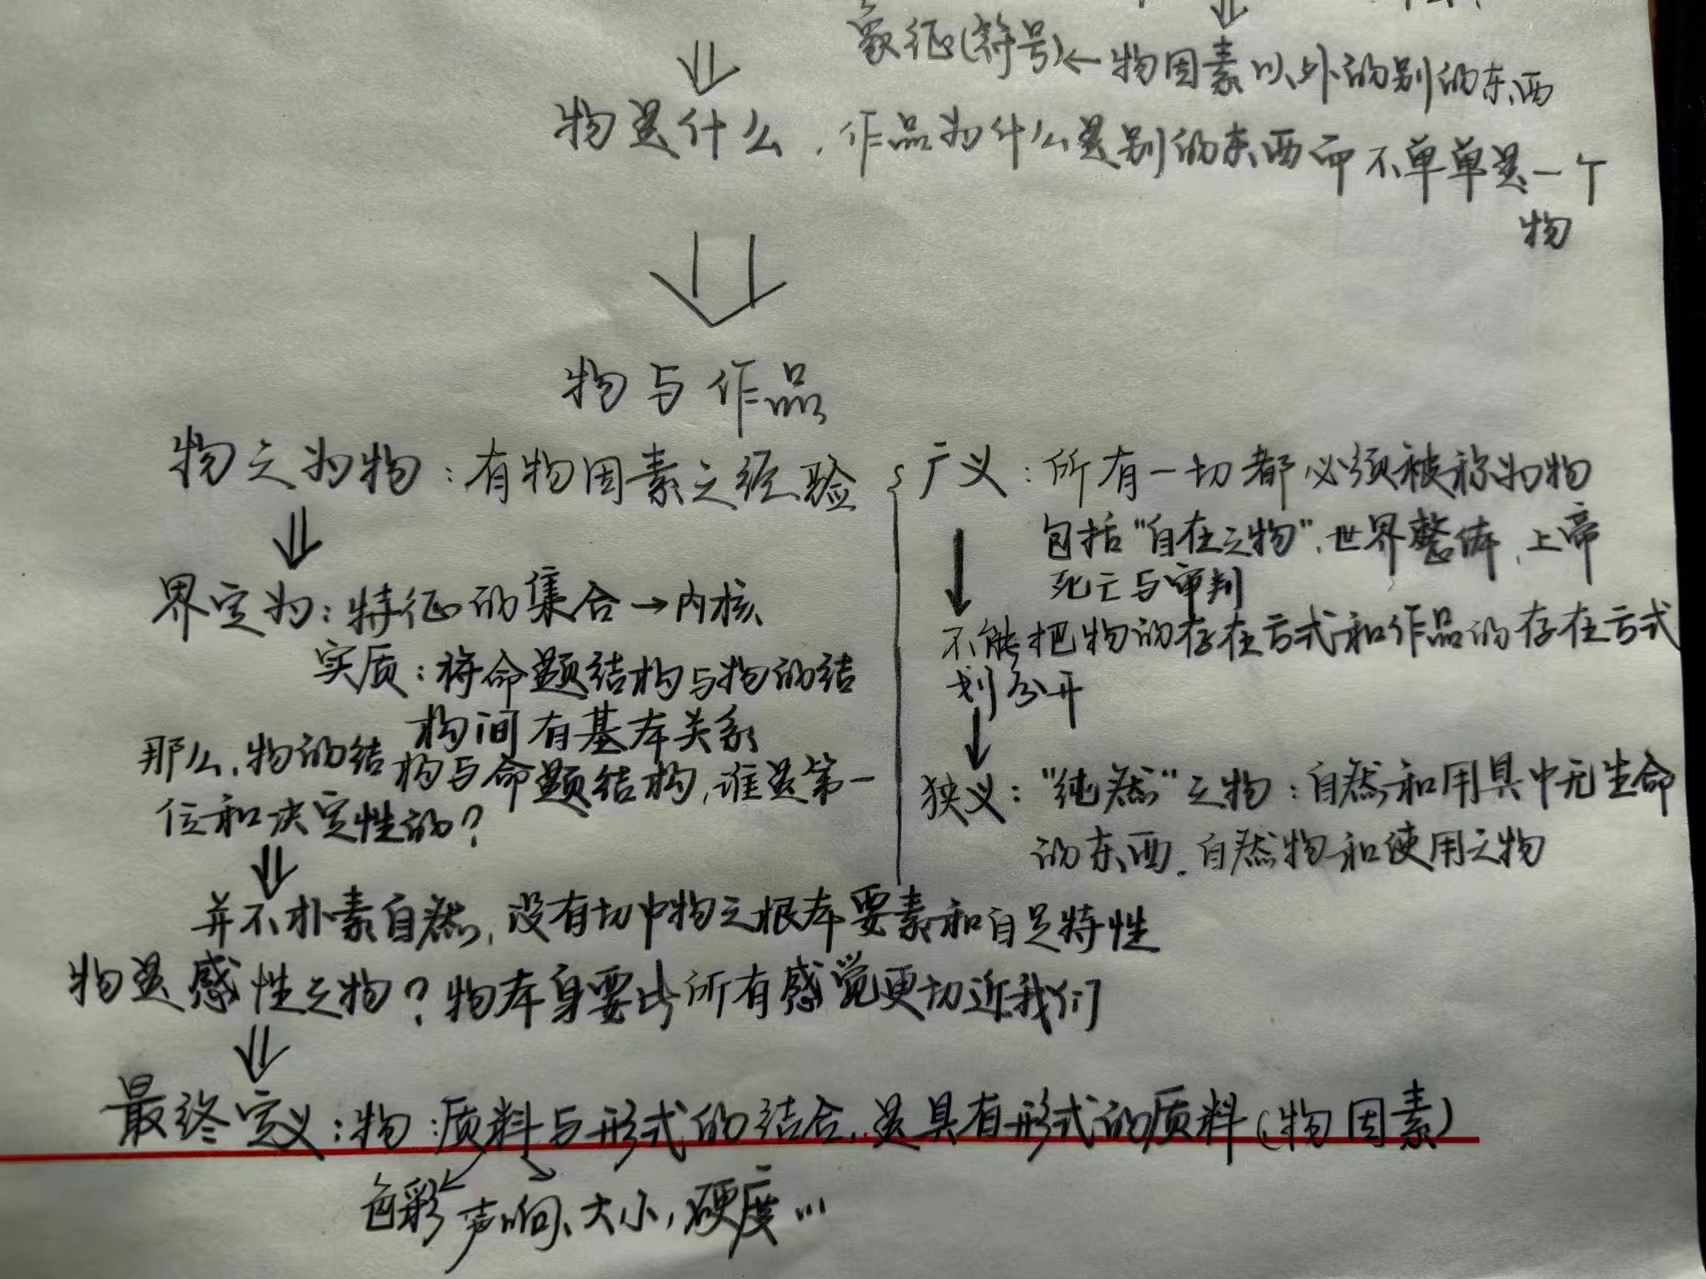 象征(符号)←物因素以外的别的东西
物是什么，作品为什么是别的东西而不单单是一个
物
物与作品
物之为物：有物因素之经验
广义：所有一切都必须被称为物
包括“自在之物”，世界整体，上帝
死亡与审判
不能把物的存在方式和作品的存在方式
划分开
狭义：“纯然”之物：自然和用具中无生命
的东西．自然物和使用之物
界定为：特征的集合→内核
实质：将命题结构与物的结
构间有基本关系
那么，物的结构与命题结构，谁是第一
位和决定性的？
并不朴素自然，没有切中物之根本要素和自足特性
物是感性之物？物本身要比所有感觉更切近我们
最终定义：物：质料与形式的结合，是具有形式的质料(物因素)
色彩 声响、大小，硬度…